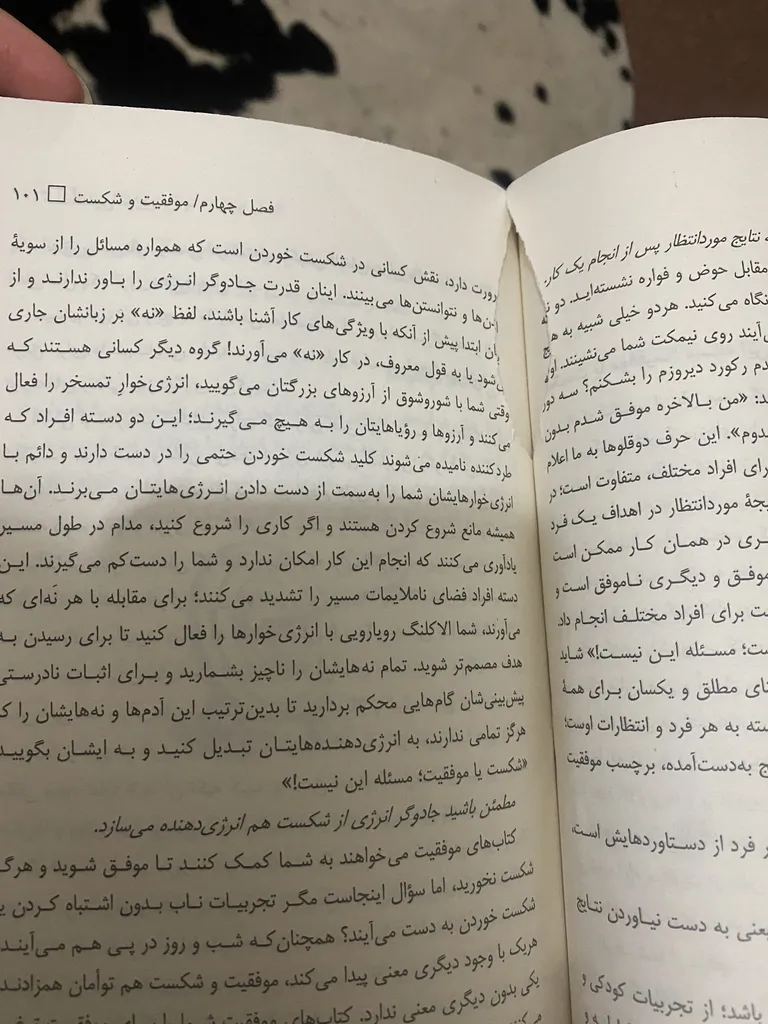 نتایج موردانتظار پس از انجام یک کار.
مقابل حوض و فواره نشسته‌اید. دو
نگاه می کنید. هردو خیلی شبیه به
آیند روی نیمکت شما می‌نشینند.
رکورد دیروزم را بشکنم؟ سه دور
«من بالاخره موفق شدم بدون
بدوم». این حرف دوقلوها به ما اعلام
برای افراد مختلف، متفاوت است؛ در
موردانتظار در اهداف یک فرد
در همان کار ممکن است
موفق و دیگری ناموفق است و
برای افراد مختلف انجام داد.
مسئله این نیست!» شاید
مطلق و یکسان برای همهٔ
به هر فرد و انتظارات اوست؛
به‌دست‌آمده، برچسب موفقیت
فرد از دستاوردهایش است،
یعنی به دست نیاوردن نتایج
باشد؛ از تجربیات کودکی و
فصل چهارم/ موفقیت و شکست □ ۱۰۱
دارد، نقش کسانی در شکست خوردن است که همواره مسائل را از سویهٔ
و نتوانستن‌ها می‌بینند. اینان قدرت جادوگر انرژی را باور ندارند و از
ابتدا پیش از آنکه با ویژگی‌های کار آشنا باشند، لفظ «نه» بر زبانشان جاری
می‌شود یا به قول معروف، در کار «نه» می‌آورند! گروه دیگر کسانی هستند که
وقتی شما با شوروشوق از آرزوهای بزرگتان می‌گویید، انرژی‌خوارِ تمسخر را فعال
می‌کنند و آرزوها و رؤیاهایتان را به هیچ می‌گیرند؛ این دو دسته افراد که
طردکننده نامیده می‌شوند کلید شکست خوردن حتمی را در دست دارند و دائم با
انرژی‌خوارهایشان شما را به‌سمت از دست دادن انرژی‌هایتان می‌برند. آن‌ها
همیشه مانع شروع کردن هستند و اگر کاری را شروع کنید، مدام در طول مسیر
یادآوری می‌کنند که انجام این کار امکان ندارد و شما را دست‌کم می‌گیرند. این
دسته افراد فضای ناملایمات مسیر را تشدید می‌کنند؛ برای مقابله با هر نَه‌ای که
می‌آورند، شما الاکلنگ رویارویی با انرژی‌خوارها را فعال کنید تا برای رسیدن به
هدف مصمم‌تر شوید. تمام نه‌هایشان را ناچیز بشمارید و برای اثبات نادرستی
پیش‌بینی‌شان گام‌هایی محکم بردارید تا بدین‌ترتیب این آدم‌ها و نه‌هایشان را که
هرگز تمامی ندارند، به انرژی‌دهنده‌هایتان تبدیل کنید و به ایشان بگویید
«شکست یا موفقیت؛ مسئله این نیست!»
مطمئن باشید جادوگر انرژی از شکست هم انرژی‌دهنده می‌سازد.
کتاب‌های موفقیت می‌خواهند به شما کمک کنند تا موفق شوید و هرگز
شکست نخورید، اما سؤال اینجاست مگر تجربیات ناب بدون اشتباه کردن یا
شکست خوردن به دست می‌آیند؟ همچنان‌که شب و روز در پی هم می‌آیند
هریک با وجود دیگری معنی پیدا می‌کند، موفقیت و شکست هم توأمان همزادند
یکی بدون دیگری معنی ندارد. کتاب‌های موفقیت شما را برای موفقیت